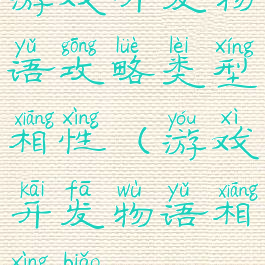 游戏开发物
yǔ gōng lüè lèi xíng
语攻略类型
xiāng xìng yóu xì
相性（游戏
kāi fā wù yǔ xiāng
开发物语相
xìng biǎo